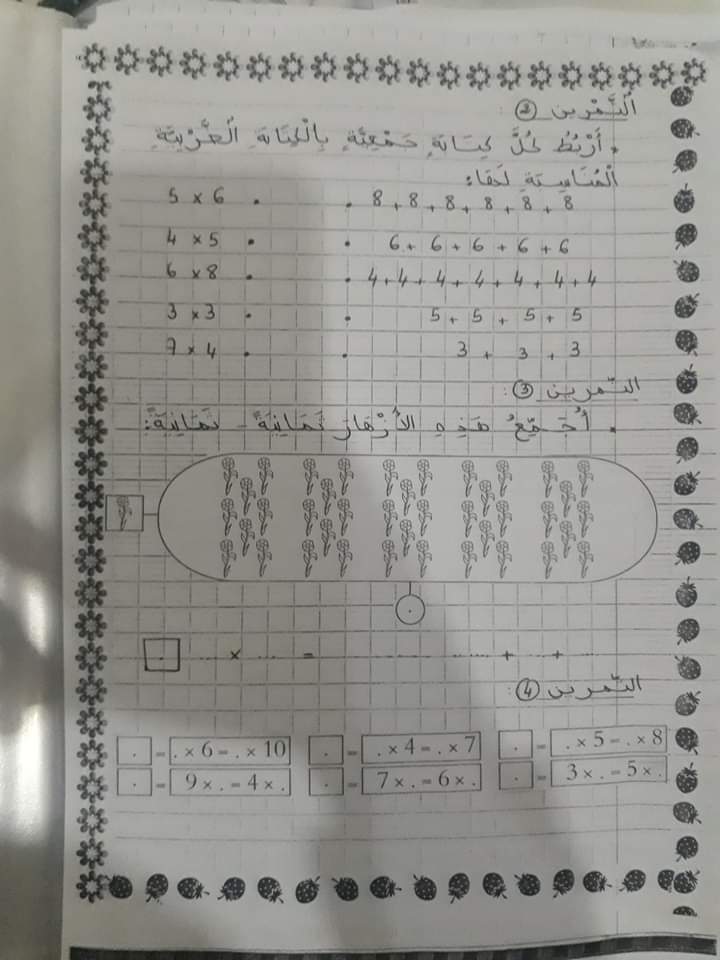 التَّمْرِين ②
• أَرْبُطُ كُلَّ كِتَابَةٍ جَمْعِيَّةٍ بِالْكِتَابَةِ الضَّرْبِيَّةِ
الْمُنَاسِبَةِ لَهَا:
5 × 6 • • 8 + 8 + 8 + 8 + 8 + 8
4 × 5 • • 6 + 6 + 6 + 6 + 6
6 × 8 • • 4 + 4 + 4 + 4 + 4 + 4 + 4
3 × 3 • • 5 + 5 + 5 + 5
7 × 4 • • 3 + 3 + 3
التّمرين ③:
• أُجَمِّعُ هَذِهِ الأَزْهَارَ ثَمَانِيَةً - ثَمَانِيَةً:
. .... × .... = .... + .... + ....
التّمرين ④:
. = . × 6 = . × 10 . = . × 4 = . × 7 . = . × 5 = . × 8
. = 9 × . = 4 × . . = 7 × . = 6 × . . = 3 × . = 5 × .